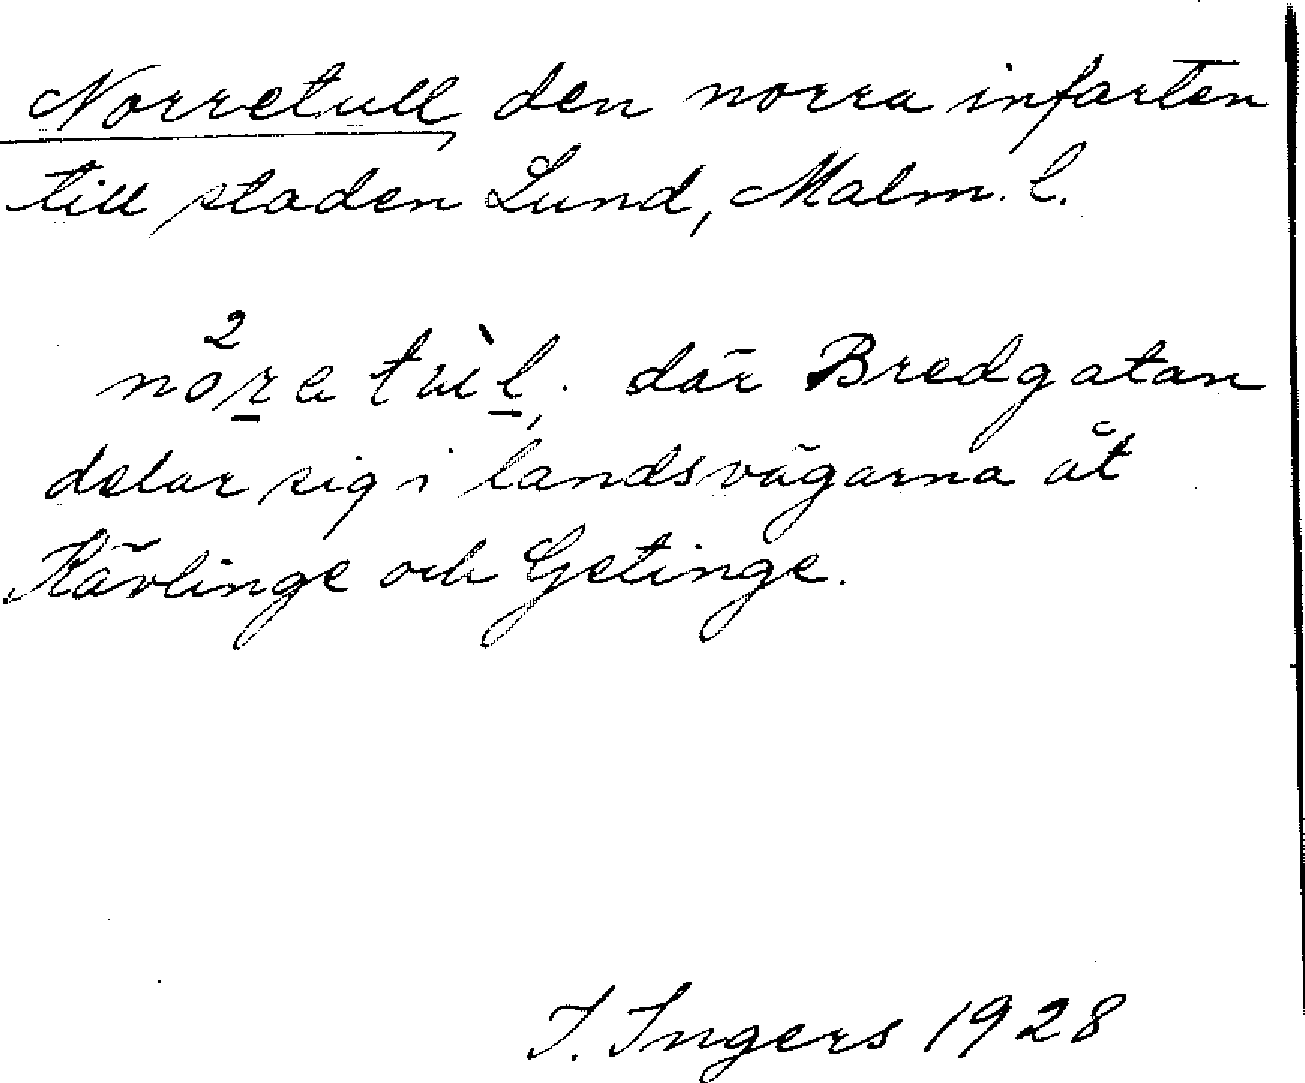 Norretull, den norra infarten
till staden Lund, Malm. l.
där Bredgatan
delar sig i landsvägarna åt
Kävlinge och Getinge.
I. Ingers 1928